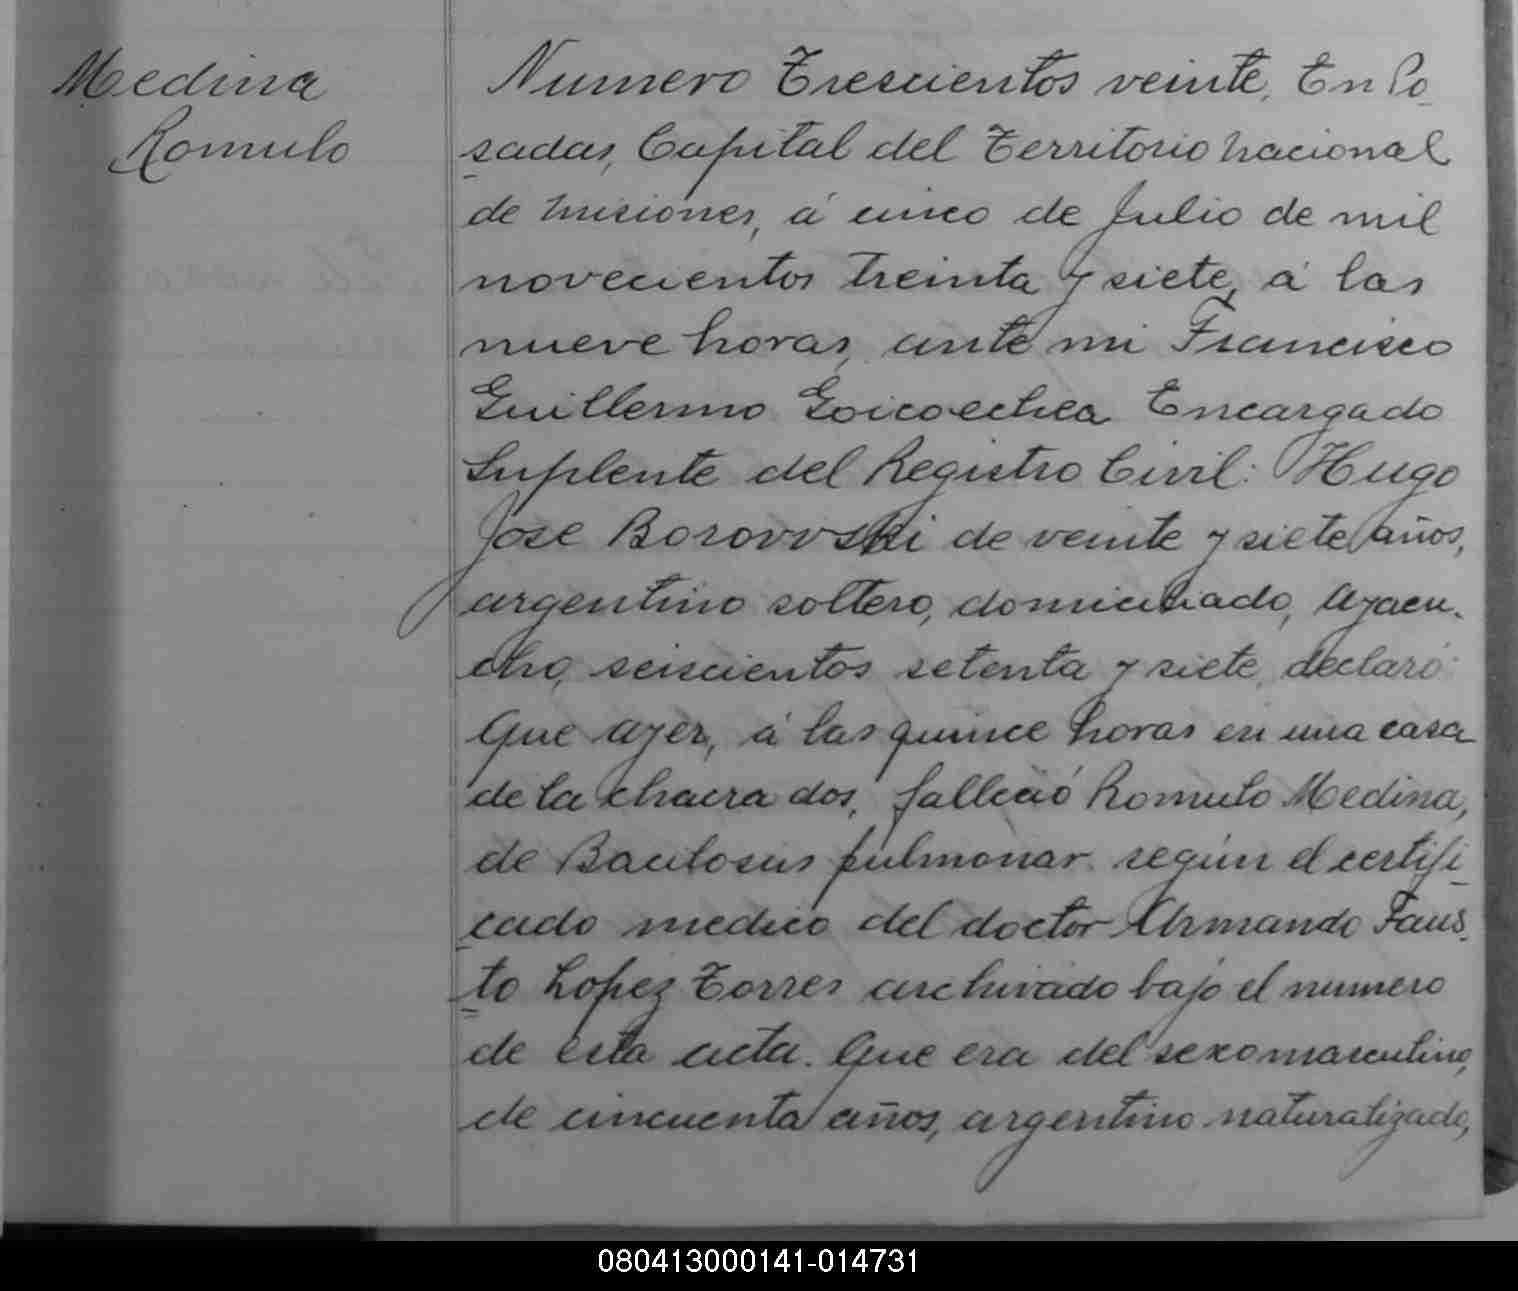 Medina
Romulo
Numero Trescientos veinte, En Po
sadas, Capital del Territorio nacional
de Misiones, á cinco de Julio de mil
novecientos treinta y siete, á las
nueve horas, ante mi Francisco
Guillermo Goicoechea Encargado
Suplente del Registro Civil: Hugo
Jose Borovvski de veinte y siete años,
argentino soltero, domiciliado, Ayacu-
cho, seiscientos setenta y siete, declaró:
Que ayer, á las quince horas en una casa
de la chacra dos, falleció Romulo Medina,
de Bacilosis pulmonar. según el certifi_
cado medico del doctor Armando Faus_
to Lopez Torres archivado bajo el numero
de esta acta. Que era del sexo masculino,
de cincuenta años, argentino naturalizado,
080413000141-014731